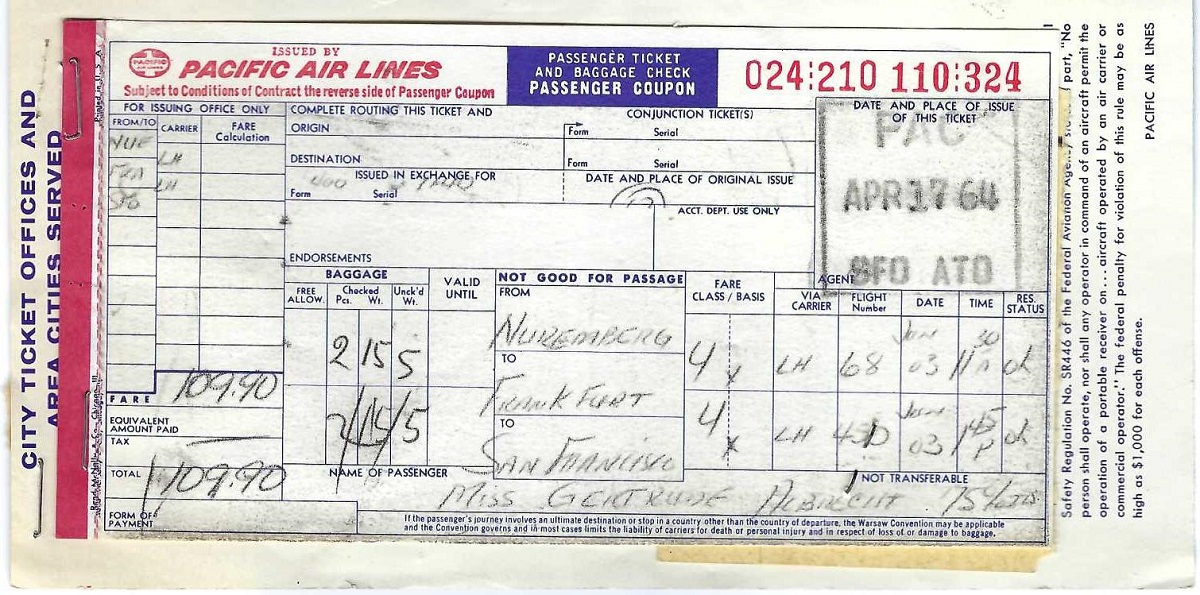 CITY TICKET OFFICES AND
AREA CITIES SERVED
ISSUED BY
PACIFIC AIR LINES
Subject to Conditions of Contract the reverse side of Passenger Coupon
PASSENGER TICKET
AND BAGGAGE CHECK
PASSENGER COUPON
024:210 110:324
FOR ISSUING OFFICE ONLY
FROM/TO CARRIER FARE Calculation
NUE LH
FRA LH
SFO
COMPLETE ROUTING THIS TICKET AND
CONJUNCTION TICKET(S)
ORIGIN
Form Serial
DESTINATION
Form Serial
ISSUED IN EXCHANGE FOR
Form Serial
DATE AND PLACE OF ORIGINAL ISSUE
ACCT. DEPT. USE ONLY
ENDORSEMENTS
DATE AND PLACE OF ISSUE
OF THIS TICKET
PAC
APR 17 64
SFO ATO
AGENT
BAGGAGE
FREE ALLOW. Checked Pcs. Wt. Unck'd Wt.
VALID UNTIL
NOT GOOD FOR PASSAGE
FARE CLASS / BASIS
VIA CARRIER
FLIGHT Number
DATE
TIME
RES. STATUS
FROM
NUREMBERG
2 15 5
4 Y LH 68 JUN 03 11 30 A ok
TO
FRANKFURT
2/15/5
4 Y LH JUN 03 1 45 P ok
TO
SAN FRANCISCO
FARE 109.90
EQUIVALENT
AMOUNT PAID
TAX
TOTAL 109.90
FORM OF
PAYMENT
NAME OF PASSENGER
NOT TRANSFERABLE
MISS GERTRUDE ALBRECHT
If the passenger's journey involves an ultimate destination or stop in a country other than the country of departure, the Warsaw Convention may be applicable
and the Convention governs and in most cases limits the liability of carriers for death or personal injury and in respect of loss of or damage to baggage.
Safety Regulation No. SR446 of the Federal Aviation Agency part, "No
person shall operate, nor shall any operator in command of an aircraft permit the
operation of a portable receiver on ... aircraft operated by an air carrier or
commercial operator." The federal penalty for violation of this rule may be as
high as $1,000 for each offense.
PACIFIC AIR LINES